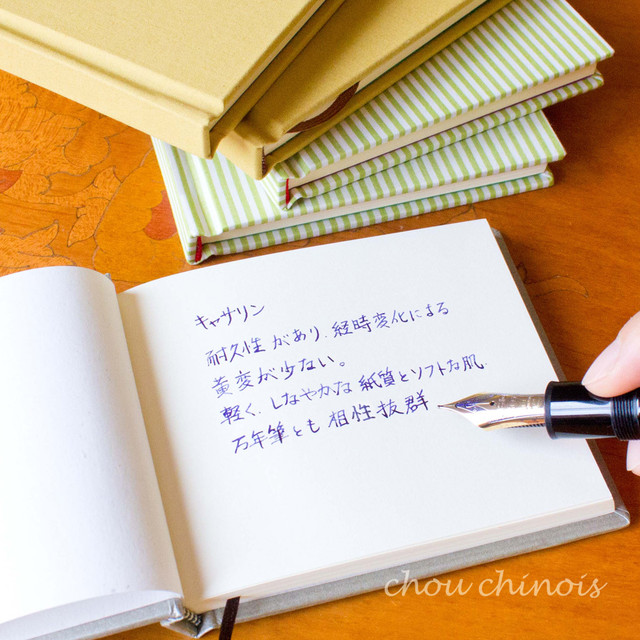 キャサリン
耐久性があり、経時変化による
黄変が少ない。
軽く、しなやかな紙質とソフトな肌、
万年筆とも相性抜群
chou chinois